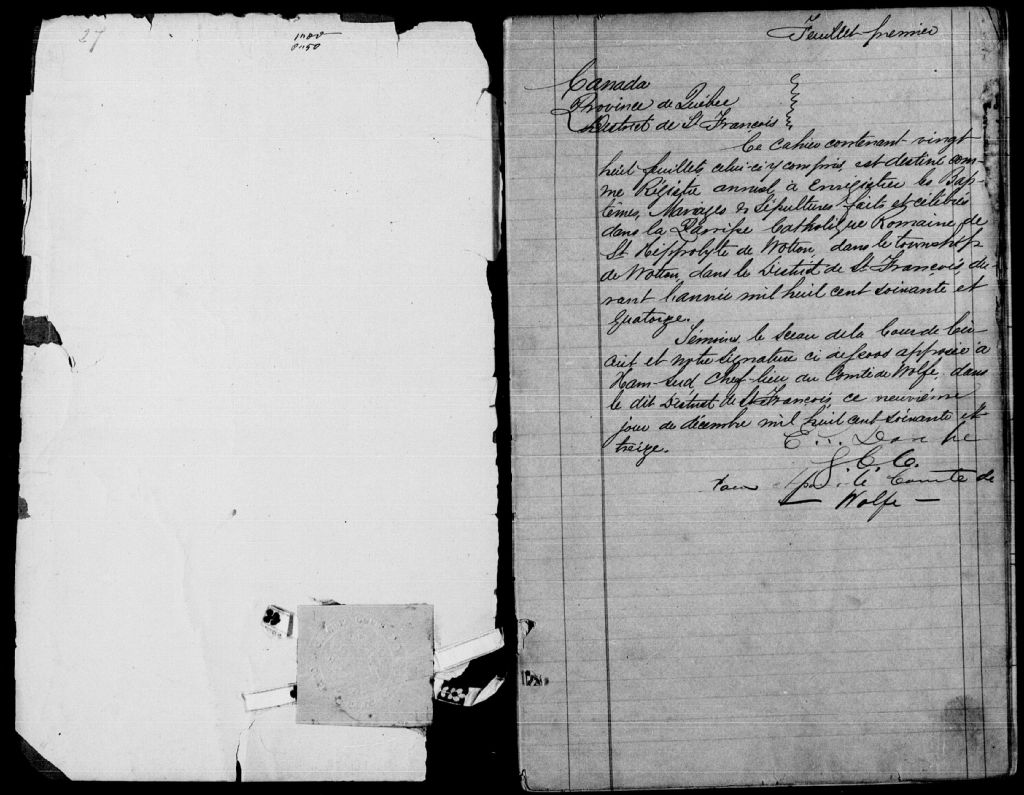 27
Feuillet premier
Canada
Province de Québec
District de St François
Ce cahier contenant vingt
huit feuillets celui-ci y compris, est destiné com-
me Régistre annuel à enregistrer les Bap-
têmes, Mariages & Sépultures faits et célébrés
dans la Paroisse Catholique Romaine de
St Hippolyte de Wotton, dans le township
de Wotton, dans le District de St François, du-
rant l'année mil huit cent soixante et
quatorze.
Témoins, le sceau de la Cour de Cir-
cuit et notre signature ci dessous apposée à
Ham-Sud, Chef-lieu du Comté de Wolfe, dans
le dit District de St François, ce neuvième
jour de décembre mil huit cent soixante et
treize.
G. C. C.
pour le Comté de
Wolfe